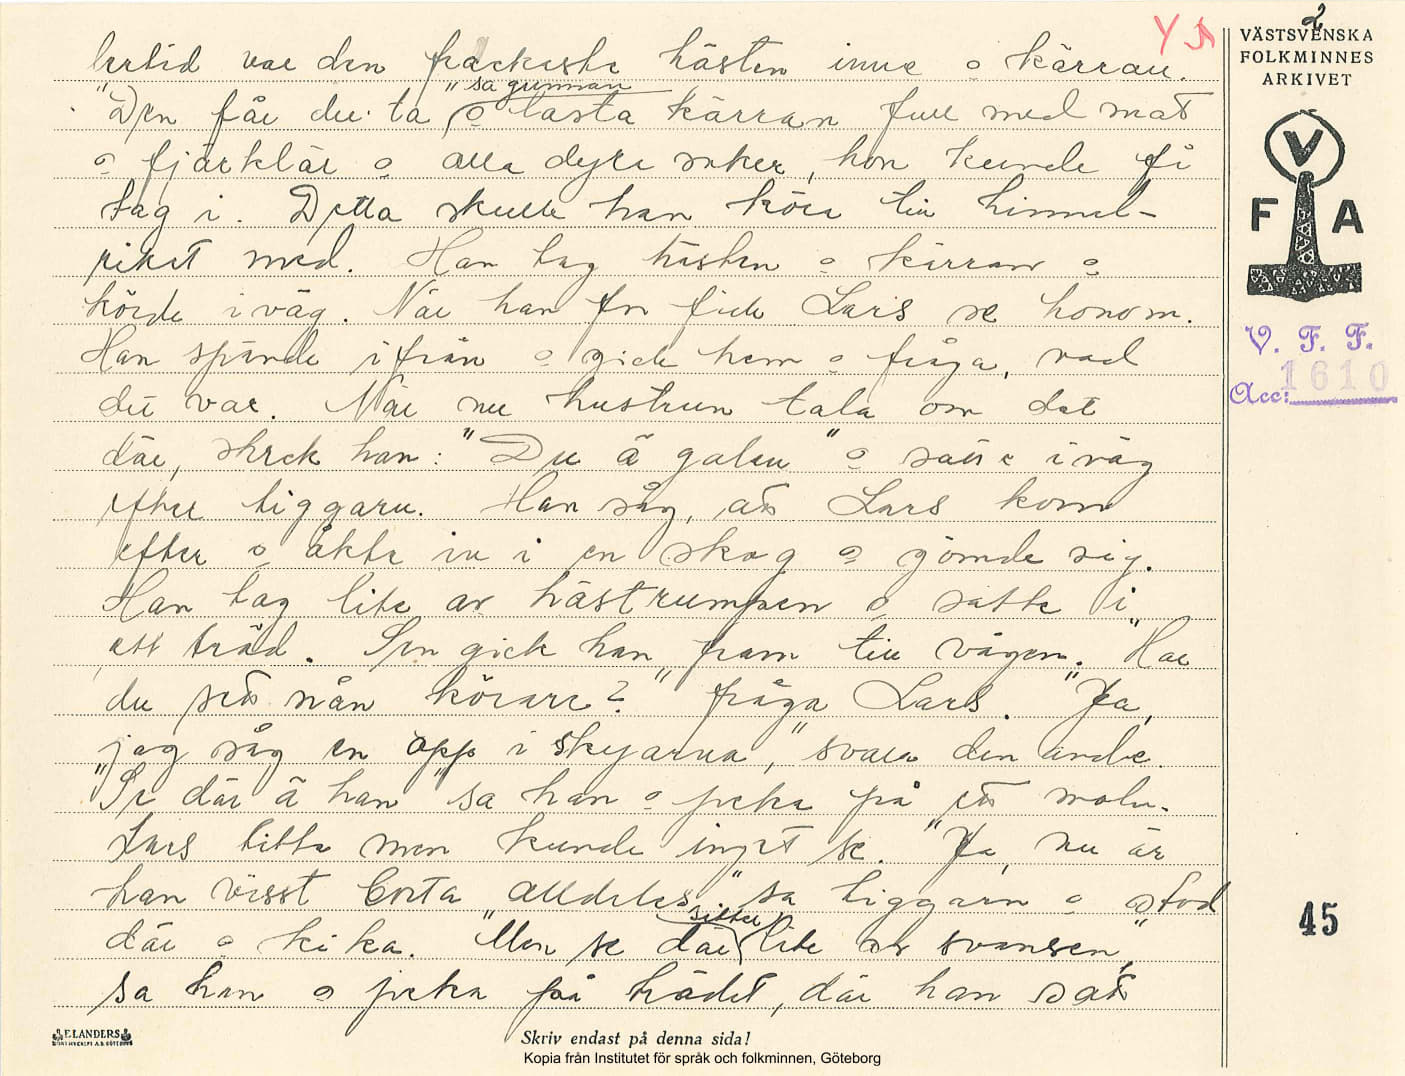 lertid var den frackaste hästen inne o kärran.
"Den får du ta," sa gumman o lasta kärran full med mat
o fjärklär o alla dyra saker, hon kunde få
tag i. Detta skulle han köra till himmel-
riket med. Han tag hästen o kärran o
körde iväg. När han for fick Lars se honom.
Han spände ifrån o gick hem o fråga, vad
det var. När nu hustrun tala om det
där, skrek han: "Du ä galen" o satte iväg
efter tiggarn. Han såg, att Lars kom
efter o åkte in i en skog o gömde sig.
Han tag lite av hästrumpen o satte i
ett träd. Sen gick han fram till vägen. "Har
du sett nån körare?" fråga Lars. "Ja,
jag såg en opp i skyarna," svara den andre.
"Se där ä han" sa han o peka på ett moln.
Lars titta men kunde inget se. "Ja, nu är
han visst borta alldeles," sa tiggarn o stod
där o kika. "Men se där sitter lite av svansen,"
sa han o peka på trädet, där han satt
Y
2
VÄSTSVENSKA
FOLKMINNES
ARKIVET
V
F A
V. F. F.
Acc: 1610
45
ELANDERS
Skriv endast på denna sida!
Kopia från Institutet för språk och folkminnen, Göteborg